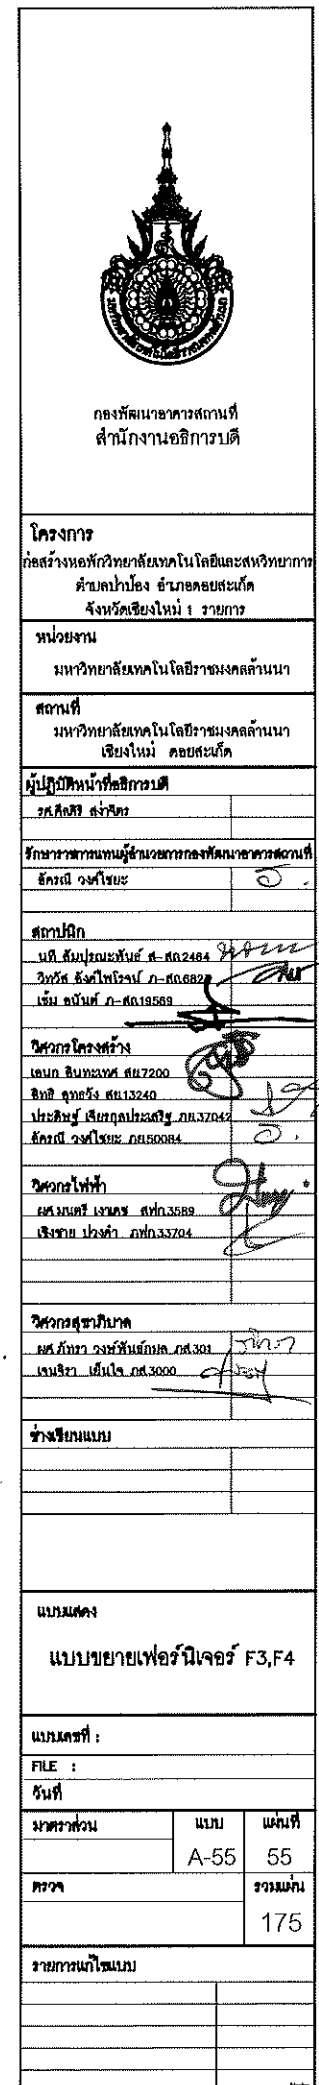 กองพัฒนาอาคารสถานที่
สำนักงานอธิการบดี
โครงการ
ก่อสร้างหอพักวิทยาลัยเทคโนโลยีและสหวิทยาการ
ตำบลป่าป้อง อำเภอดอยสะเก็ด
จังหวัดเชียงใหม่ 1 รายการ
หน่วยงาน
มหาวิทยาลัยเทคโนโลยีราชมงคลล้านนา
สถานที่
มหาวิทยาลัยเทคโนโลยีราชมงคลล้านนา
เชียงใหม่ ดอยสะเก็ด
ผู้ปฏิบัติหน้าที่อธิการบดี
รศ.ศีลศิริ สง่าจิตร
รักษาราชการแทนผู้อำนวยการกองพัฒนาอาคารสถานที่
อัครณี วงศ์ไชยะ
สถาปนิก
นที สัมปุรณะพันธ์ ส-สถ2464
วิทวัส ธิงศ์ไพโรจน์ ภ-สถ.682
เข้ม อนันต์ ภ-สถ19569
วิศวกรโครงสร้าง
เอนก อินทะเทศ สย7200
สิทธิ สย.13240
ประดิษฐ์ เจียรกุลประเสริฐ ภย.37042
อัครณี วงศ์ไชยะ ภย.50084
วิศวกรไฟฟ้า
ผศ.มนตรี เงาเดช สฟก.3589
เชิงชาย ปวงคำ ภฟก.33704
วิศวกรสุขาภิบาล
ผศ.ภัทรา วงษ์พันธ์กมล ภส.301
เจนจิรา เย็นใจ ภส.3000
ช่างเขียนแบบ
แบบแสดง
แบบขยายเฟอร์นิเจอร์ F3,F4
แบบเลขที่ :
FILE :
วันที่
มาตราส่วน แบบ แผ่นที่
A-55 55
ตรวจ รวมแผ่น
175
รายการแก้ไขแบบ